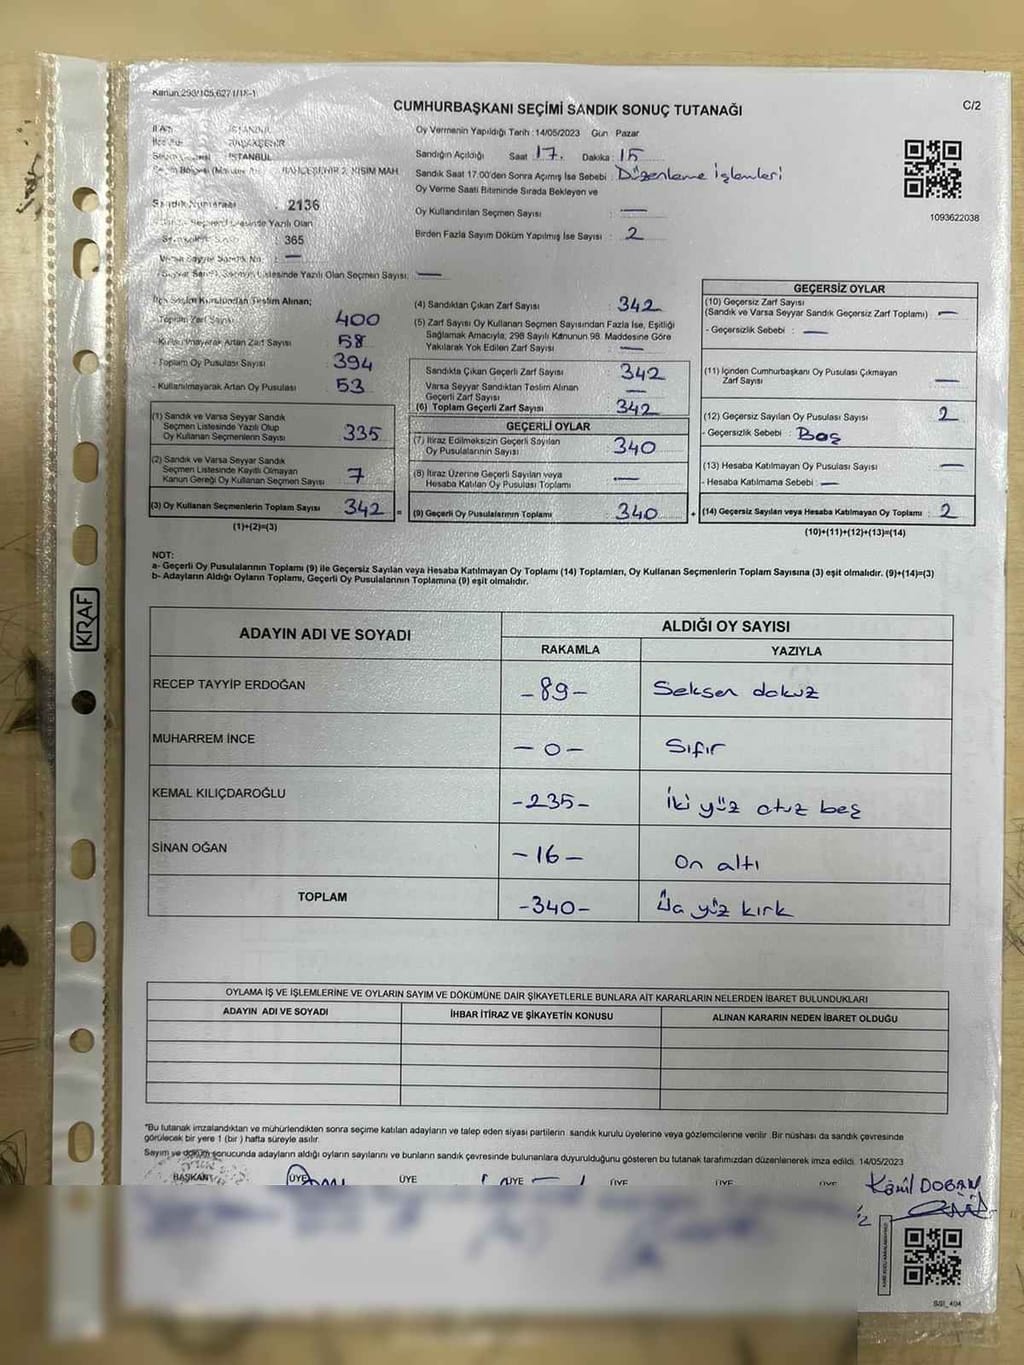 Kanun:298/105,6271/18-1
CUMHURBAŞKANI SEÇİMİ SANDIK SONUÇ TUTANAĞI
C/2
İl Adı : İSTANBUL
İlçe Adı : BAŞAKŞEHİR
Seçim : İSTANBUL
Seçim Bölgesi BAHÇEŞEHİR 2. KISIM MAH.
Sandık Numarası : 2136
Listesinde Yazılı Olan
Seçmen Sayısı : 365
Varsa Seyyar Sandık No : —
Seyyar Sandık Seçmen Listesinde Yazılı Olan Seçmen Sayısı: —
Oy Vermenin Yapıldığı Tarih : 14/05/2023 Gün Pazar
Sandığın Açıldığı Saat 17. Dakika : 15
Sandık Saat 17:00'den Sonra Açımış İse Sebebi : Düzenleme işlemleri
Oy Verme Saati Bitiminde Sırada Bekleyen ve
Oy Kullandırılan Seçmen Sayısı : —
Birden Fazla Sayım Döküm Yapılmış İse Sayısı : 2
1093622038
İlçe Seçim Kurulundan Teslim Alınan;
- Toplam Zarf Sayısı 400
- Kullanılmayarak Artan Zarf Sayısı 58
- Toplam Oy Pusulası Sayısı 394
- Kullanılmayarak Artan Oy Pusulası 53
(1) Sandık ve Varsa Seyyar Sandık
Seçmen Listesinde Yazılı Olup
Oy Kullanan Seçmenlerin Sayısı 335
(2) Sandık ve Varsa Seyyar Sandık
Seçmen Listesinde Kayıtlı Olmayan
Kanun Gereği Oy Kullanan Seçmen Sayısı 7
(3) Oy Kullanan Seçmenlerin Toplam Sayısı 342 =
(1)+(2)=(3)
(4) Sandıktan Çıkan Zarf Sayısı 342
(5) Zarf Sayısı Oy Kullanan Seçmen Sayısından Fazla İse, Eşitliği
Sağlamak Amacıyla, 298 Sayılı Kanunun 98. Maddesine Göre
Yakılarak Yok Edilen Zarf Sayısı —
Sandıkta Çıkan Geçerli Zarf Sayısı 342
Varsa Seyyar Sandıktan Teslim Alınan
Geçerli Zarf Sayısı —
(6) Toplam Geçerli Zarf Sayısı 342
GEÇERLİ OYLAR
(7) İtiraz Edilmeksizin Geçerli Sayılan
Oy Pusulalarının Sayısı 340
(8) İtiraz Üzerine Geçerli Sayılan veya
Hesaba Katılan Oy Pusulası Toplamı —
(9) Geçerli Oy Pusulalarının Toplamı 340 +
GEÇERSİZ OYLAR
(10) Geçersiz Zarf Sayısı
(Sandık ve Varsa Seyyar Sandık Geçersiz Zarf Toplamı) —
- Geçersizlik Sebebi : —
(11) İçinden Cumhurbaşkanı Oy Pusulası Çıkmayan
Zarf Sayısı —
(12) Geçersiz Sayılan Oy Pusulası Sayısı 2
- Geçersizlik Sebebi : Boş
(13) Hesaba Katılmayan Oy Pusulası Sayısı —
- Hesaba Katılmama Sebebi : —
(14) Geçersiz Sayılan veya Hesaba Katılmayan Oy Toplamı : 2
(10)+(11)+(12)+(13)=(14)
NOT:
a- Geçerli Oy Pusulalarının Toplamı (9) ile Geçersiz Sayılan veya Hesaba Katılmayan Oy Toplamı (14) Toplamları, Oy Kullanan Seçmenlerin Toplam Sayısına (3) eşit olmalıdır. (9)+(14)=(3)
b- Adayların Aldığı Oyların Toplamı, Geçerli Oy Pusulalarının Toplamına (9) eşit olmalıdır.
KRAF
ADAYIN ADI VE SOYADI
ALDIĞI OY SAYISI
RAKAMLA YAZIYLA
RECEP TAYYİP ERDOĞAN -89- Seksen dokuz
MUHARREM İNCE -0- Sıfır
KEMAL KILIÇDAROĞLU -235- İki yüz otuz beş
SİNAN OĞAN -16- On altı
TOPLAM -340- Üç yüz kırk
OYLAMA İŞ VE İŞLEMLERİNE VE OYLARIN SAYIM VE DÖKÜMÜNE DAİR ŞİKAYETLERLE BUNLARA AİT KARARLARIN NELERDEN İBARET BULUNDUKLARI
ADAYIN ADI VE SOYADI İHBAR İTİRAZ VE ŞİKAYETİN KONUSU ALINAN KARARIN NEDEN İBARET OLDUĞU
*Bu tutanak imzalandıktan ve mühürlendikten sonra seçime katılan adayların ve talep eden siyasi partilerin sandık kurulu üyelerine veya gözlemcilerine verilir. Bir nüshası da sandık çevresinde
görülecek bir yere 1 (bir) hafta süreyle asılır.
Sayım ve döküm sonucunda adayların aldığı oyların sayılarını ve bunların sandık çevresinde bulunanlara duyurulduğunu gösteren bu tutanak tarafımızdan düzenlenerek imza edildi. 14/05/2023
BAŞKAN ÜYE ÜYE ÜYE ÜYE ÜYE ÜYE
Kamil DOĞAN